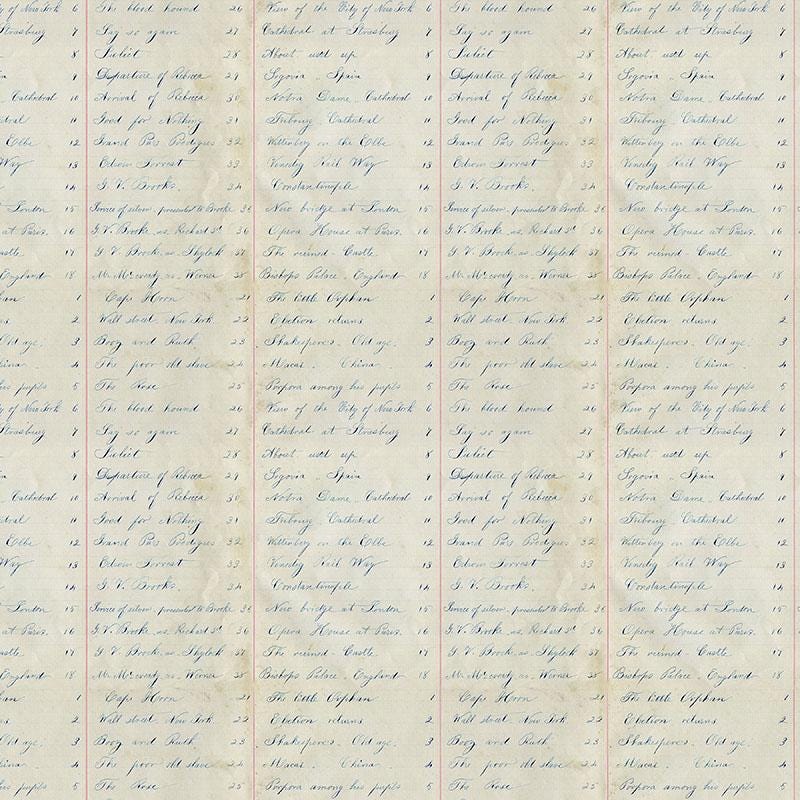 y of New York 6 The blood hound 26 View of the City of New York 6 The blood hound 26 View of the City of New York 6
Strasburg 7 Say so again 27 Cathedral at Strasburg 7 Say so again 27 Cathedral at Strasburg 7
8 Juliet 28 About used up 8 Juliet 28 About used up 8
9 Departure of Rebecca 29 Segovia - Spain 9 Departure of Rebecca 29 Segovia - Spain 9
Cathedral 10 Arrival of Rebecca 30 Notra Dame - Cathedral 10 Arrival of Rebecca 30 Notra Dame - Cathedral 10
dral 11 Good for Nothing 31 Fribourg Cathedral 11 Good for Nothing 31 Fribourg Cathedral 11
Elbe 12 Grand Pa's Prodigies 32 Wittenberg on the Elbe 12 Grand Pa's Prodigies 32 Wittenberg on the Elbe 12
Way 13 Edwin Forrest 33 Venedig Rail Way 13 Edwin Forrest 33 Venedig Rail Way 13
14 G. V. Brooke. 34 Constantinople 14 G. V. Brooke. 34 Constantinople 14
at London 15 Service of silver, presented to Brooke 35 New bridge at London 15 Service of silver, presented to Brooke 35 New bridge at London 15
at Paris. 16 G. V. Brooke, as Richard 3d 36 Opera House at Paris. 16 G. V. Brooke, as Richard 3d 36 Opera House at Paris. 16
astle 17 G. V. Brooke, as Shylock 37 The ruined - Castle 17 G. V. Brooke, as Shylock 37 The ruined - Castle 17
England 18 Mr. McCready as Werner 38 Bishops Palace, England 18 Mr. McCready as Werner 38 Bishops Palace, England 18
han 1 Cape Horn 21 The little Orphan 1 Cape Horn 21 The little Orphan 1
2 Wall street. New York 22 Election returns 2 Wall street. New York 22 Election returns 2
Old age. 3 Boaz and Ruth 23 Shakesperes. Old age. 3 Boaz and Ruth 23 Shakesperes. Old age. 3
hina. 4 The poor old slave 24 Macai. China. 4 The poor old slave 24 Macai. China. 4
his pupils 5 The Rose 25 Porpora among his pupils 5 The Rose 25 Porpora among his pupils 5
y of New York 6 The blood hound 26 View of the City of New York 6 The blood hound 26 View of the City of New York 6
Strasburg 7 Say so again 27 Cathedral at Strasburg 7 Say so again 27 Cathedral at Strasburg 7
8 Juliet 28 About used up 8 Juliet 28 About used up 8
9 Departure of Rebecca 29 Segovia - Spain 9 Departure of Rebecca 29 Segovia - Spain 9
Cathedral 10 Arrival of Rebecca 30 Notra Dame - Cathedral 10 Arrival of Rebecca 30 Notra Dame - Cathedral 10
dral 11 Good for Nothing 31 Fribourg Cathedral 11 Good for Nothing 31 Fribourg Cathedral 11
Elbe 12 Grand Pa's Prodigies 32 Wittenberg on the Elbe 12 Grand Pa's Prodigies 32 Wittenberg on the Elbe 12
Way 13 Edwin Forrest 33 Venedig Rail Way 13 Edwin Forrest 33 Venedig Rail Way 13
14 G. V. Brooke. 34 Constantinople 14 G. V. Brooke. 34 Constantinople 14
at London 15 Service of silver, presented to Brooke 35 New bridge at London 15 Service of silver, presented to Brooke 35 New bridge at London 15
at Paris. 16 G. V. Brooke, as Richard 3d 36 Opera House at Paris. 16 G. V. Brooke, as Richard 3d 36 Opera House at Paris. 16
astle 17 G. V. Brooke, as Shylock 37 The ruined - Castle 17 G. V. Brooke, as Shylock 37 The ruined - Castle 17
England 18 Mr. McCready as Werner 38 Bishops Palace, England 18 Mr. McCready as Werner 38 Bishops Palace, England 18
han 1 Cape Horn 21 The little Orphan 1 Cape Horn 21 The little Orphan 1
2 Wall street. New York 22 Election returns 2 Wall street. New York 22 Election returns 2
Old age. 3 Boaz and Ruth 23 Shakesperes. Old age. 3 Boaz and Ruth 23 Shakesperes. Old age. 3
hina. 4 The poor old slave 24 Macai. China. 4 The poor old slave 24 Macai. China. 4
his pupils 5 The Rose 25 Porpora among his pupils 5 The Rose 25 Porpora among his pupils 5